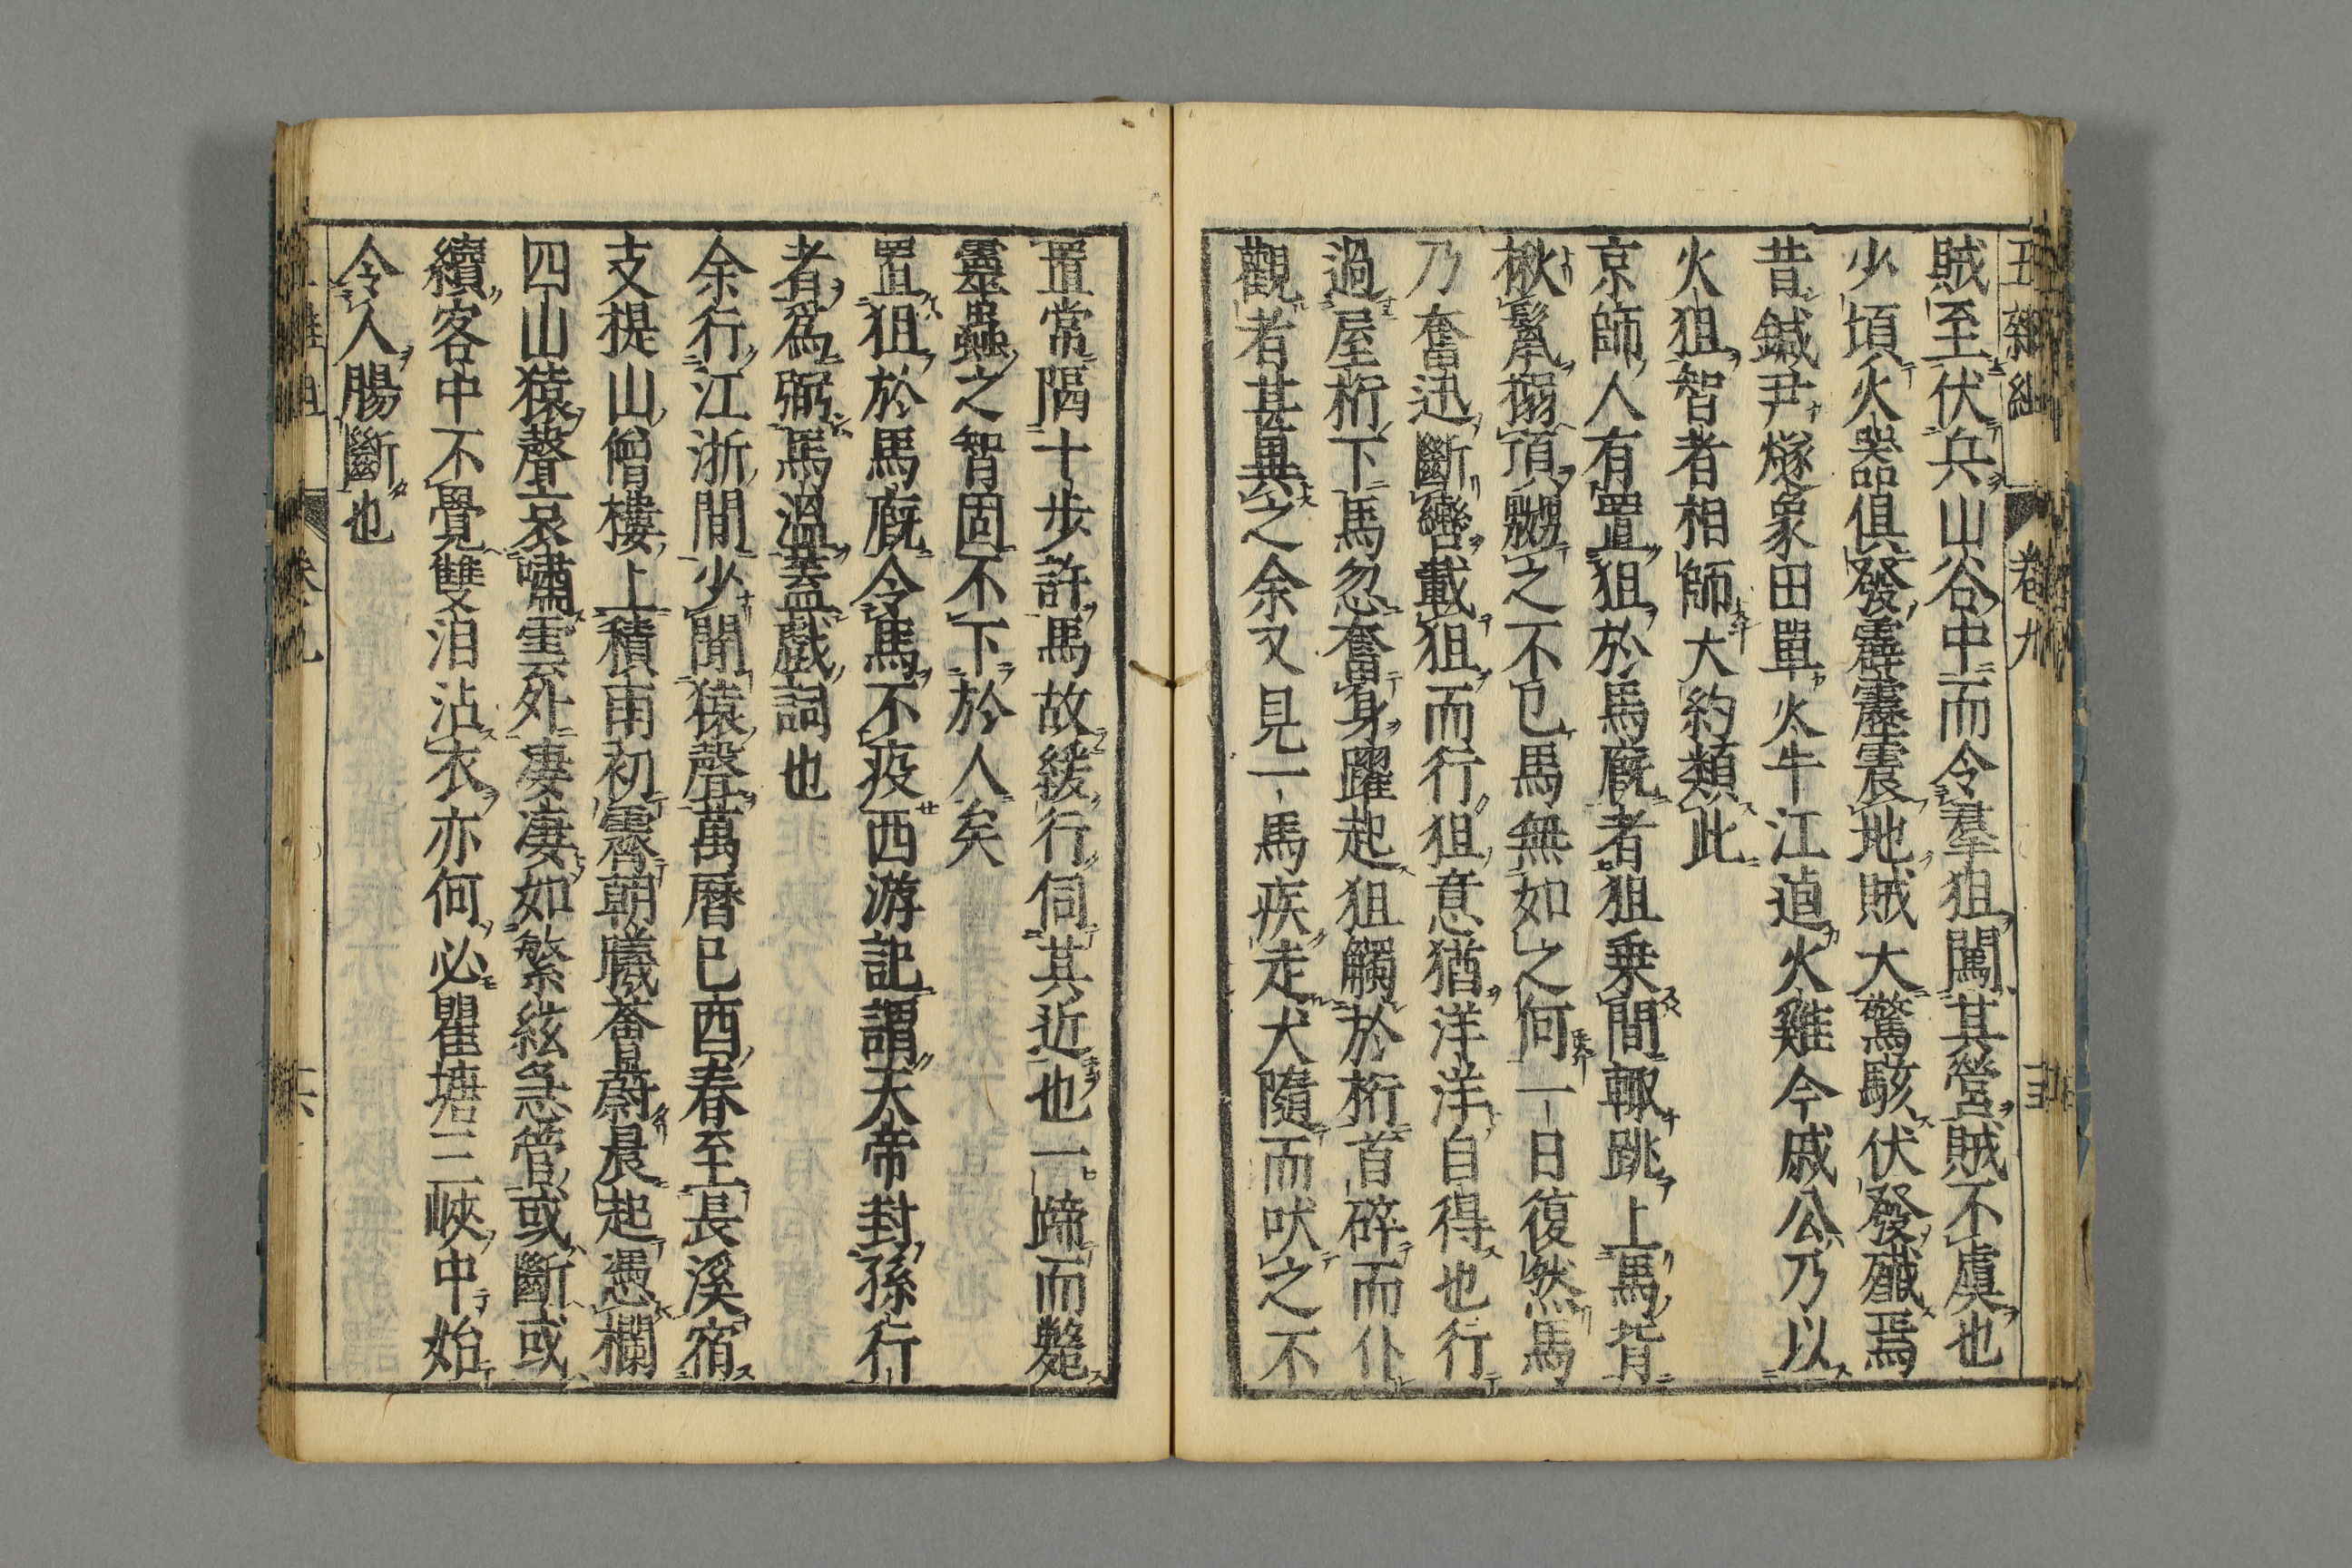 五雜組 卷九
賊至伏兵山谷中而令羣狙闖其營賊不虞也
少頃火器俱發霹靂震地賊大驚駭伏發殲焉
昔鍼尹燧象田單火牛江逌火雞今戚公乃以
火狙智者相師大約類此
京師人有置狙於馬廐者狙乗間輙跳上馬背
楸鬃搦項嬲之不已馬無如之何一日復然馬
乃奮迅斷轡載狙而行狙意猶洋洋自得也行
過屋桁下馬忽奮身躍起狙觸於桁首碎而仆
觀者甚異之余又見一馬疾走犬隨而吠之不
置常隔十步許馬故緩行伺其近也一蹄而斃
靈蟲之智固不下於人矣
置狙於馬廐令馬不疫西游記謂天帝封孫行
者爲弼馬溫蓋戲詞也
余行江浙間少聞猿聲萬曆巳酉春至長溪宿
支提山僧樓上積雨初霽朝曦薈蔚晨起憑欄
四山猿聲哀嘯雲外凄凄如繁絃急管或斷或
續客中不覺雙泪沾衣亦何必瞿塘三峽中始
令人腸斷也